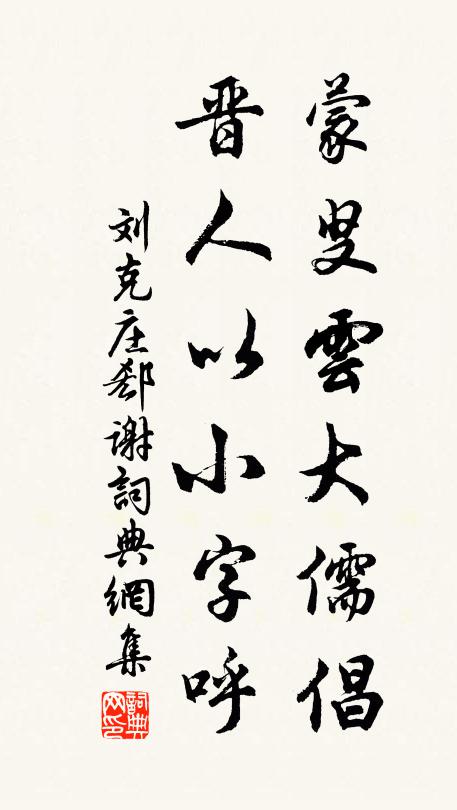 蒙叟雲大儒倡
晋人以小字呼
刘克庄郄谢詞典網集
詞典网印